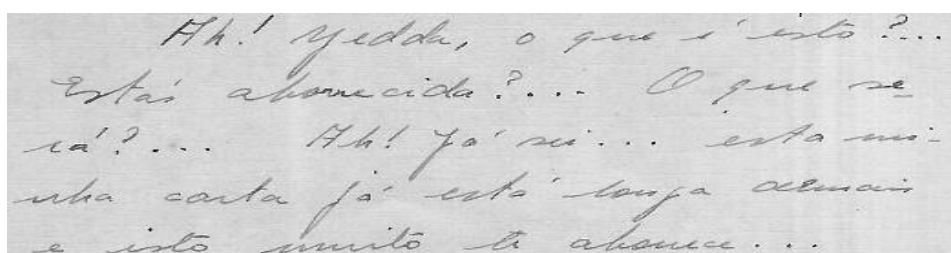 Ah! Yedda, o que é isto?...
Estás aborrecida?... O que se-
rá?... Ah! Já sei... esta mi-
nha carta já está longa demais
e isto muito te aborrece...